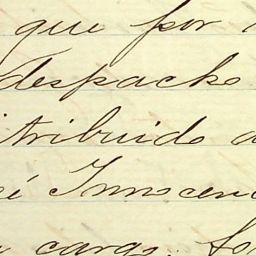 que por
despacho
tribuido a
é Innocen
cargo. fo